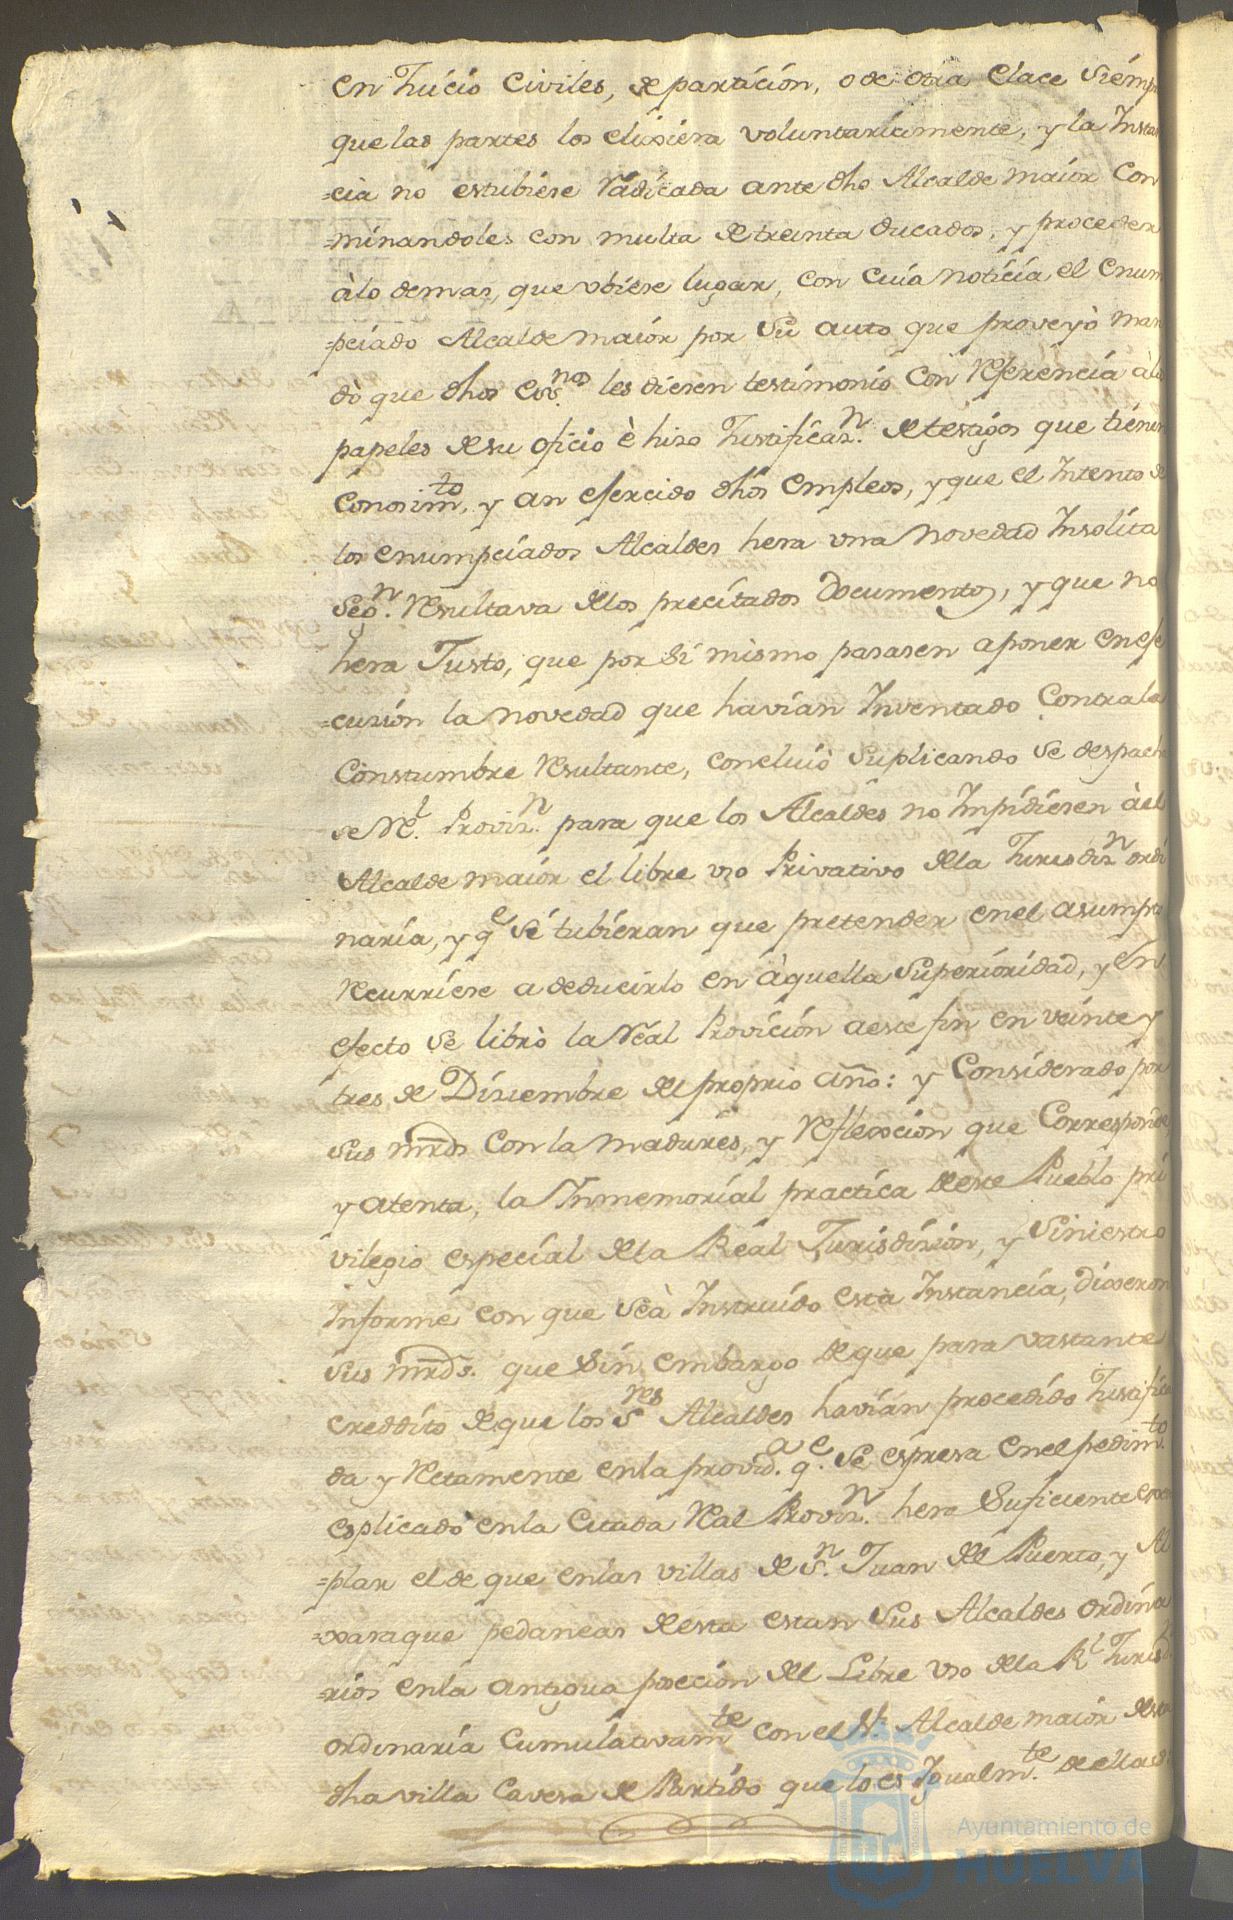 en Juicio Civiles, de partición, o de otra Clace Siémp
que las partes los elixiera voluntariamente, y la Instan
=cia no estubiese Rádicada ante dho Alcalde maior Con
=minandoles con multa de treinta ducados, y proceder
àlo demas, que vbiese lugar, con cuia noticia el enum
=pciado Alcalde maior por Su auto que proveyò man
dò que dhos essnos les diesen testimonio con Referencia àlos
papeles de su oficio è hizo Justificazn. de testigos que tiénen
Conosimto, y an ejercido dhos empleos, y que el Intento de
los enumpciados Alcaldes hera vna Novedad Insolita
Segn. Resultava de los precitados Documentos, y que no
hera Justo, que por Si mismo pasasen aponer en eje
=cusion la Novedad que havian Inventado Contra la
Constumbre Resultante, concluió Suplicando Se despacha
se Rl. Provizn. para que los Alcaldes no Impidiesen àel
Alcalde maior el libre vso Privativo de la Jurisdizn ordi
naria, y qe Sé tubieran que pretender en el asumpto
Recurriese a deducirlo en àquella Superioridad, y En
efecto Se librò la Réal Provición aeste fin en veinte y
tres de Diziembre del proprio año: y Considerado por
sus mrds Con la madurés, y Reflexsion que Corresponde,
y atenta, la Inmemorial practica de este Pueblo pri
vilegio especial de la Réal Jurisdizion, y Siniestro
Informe con que Seà Instruido esta Instancia, dixeron
sus mrds. que Sin embargo de que para vastante
creddito de que los Sres Alcaldes havian procedido Justifica
da y Rectamente en la provida. qe. Se espresa en el pedimto
esplicado en la Citada Real Provizn. hera Suficiente exem
=plar el de que en las villas de Sn. Juan del Puerto, y Al
=xaraque pedaneas de esta estan Sus Alcaldes ordina
=rios en la antigua poseción del Libre vso de la Rl Jurisdn
ordinaria Cumulativamte con el Sr. Alcalde maior de esta
dha villa Cavesa de Partido que lo es Igualmte. de ellas
Ayuntamiento de
HUELVA